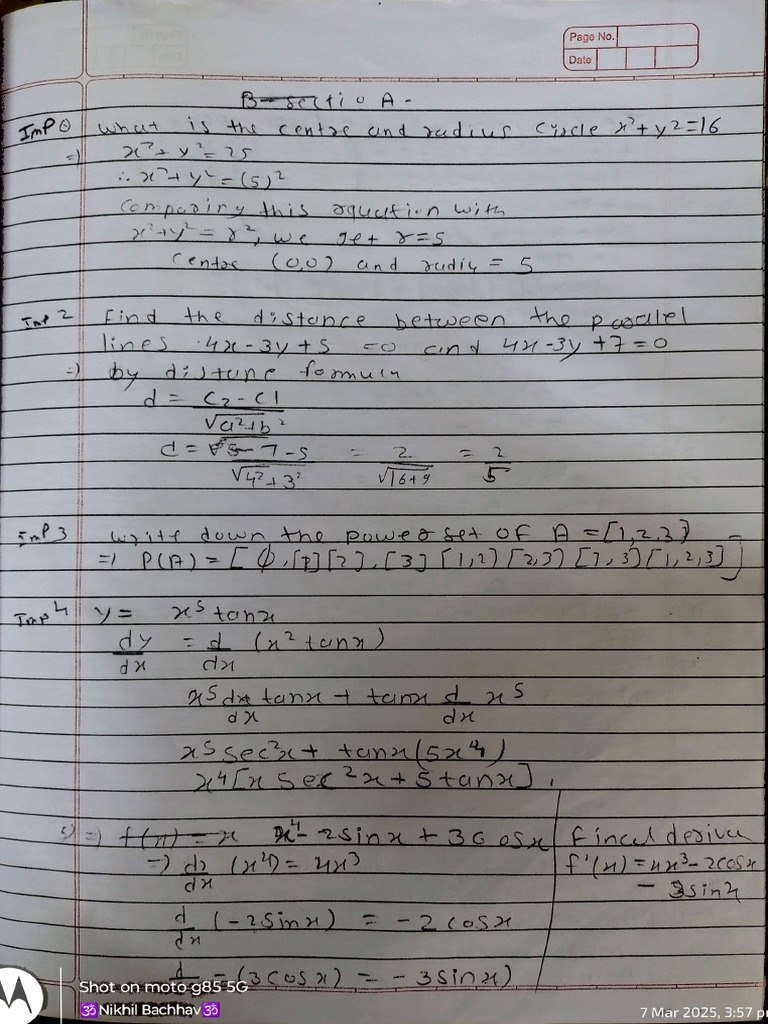 Page No.
Date
B-section A-
Imp ① What is the centre and radius Circle x²+y²=16
=) x²+y²=25
∴ x²+y²=(5)²
Comparing this equation with
x²+y²=r², we get r=5
Centre (0,0) and radiu = 5
Imp 2 Find the distance between the parallel
lines 4x-3y+5 =0 and 4x-3y+7=0
=) by distane formula
d = C2-C1
√a²+b²
d = 7-5 = 2 = 2
√4²+3² √16+9 5
Imp 3 Write down the power set of A = [1,2,3}
=) P(A) = [ϕ,[1][2],[3][1,2)[2,3)[1,3)[1,2,3]]
Imp 4 y = x⁵ tanx
dy = d (x² tanx)
dx dx
x⁵ dx tanx + tanx d x⁵
dx dx
x⁵ sec²x + tanx(5x⁴)
x⁴[x sec²x + 5tanx].
5) =) f(x) = x x⁴-2sinx + 3cosx Fincal deriva
=) dx (x⁴) = 4x³ f'(x)=4x³-2cosx
dx - 3sinx
d (-2sinx) = -2cosx
dx
d -(3cosx) = -3sinx)
Shot on moto g85 5G
🕉️Nikhil Bachhav🕉️
7 Mar 2025, 3:57 p